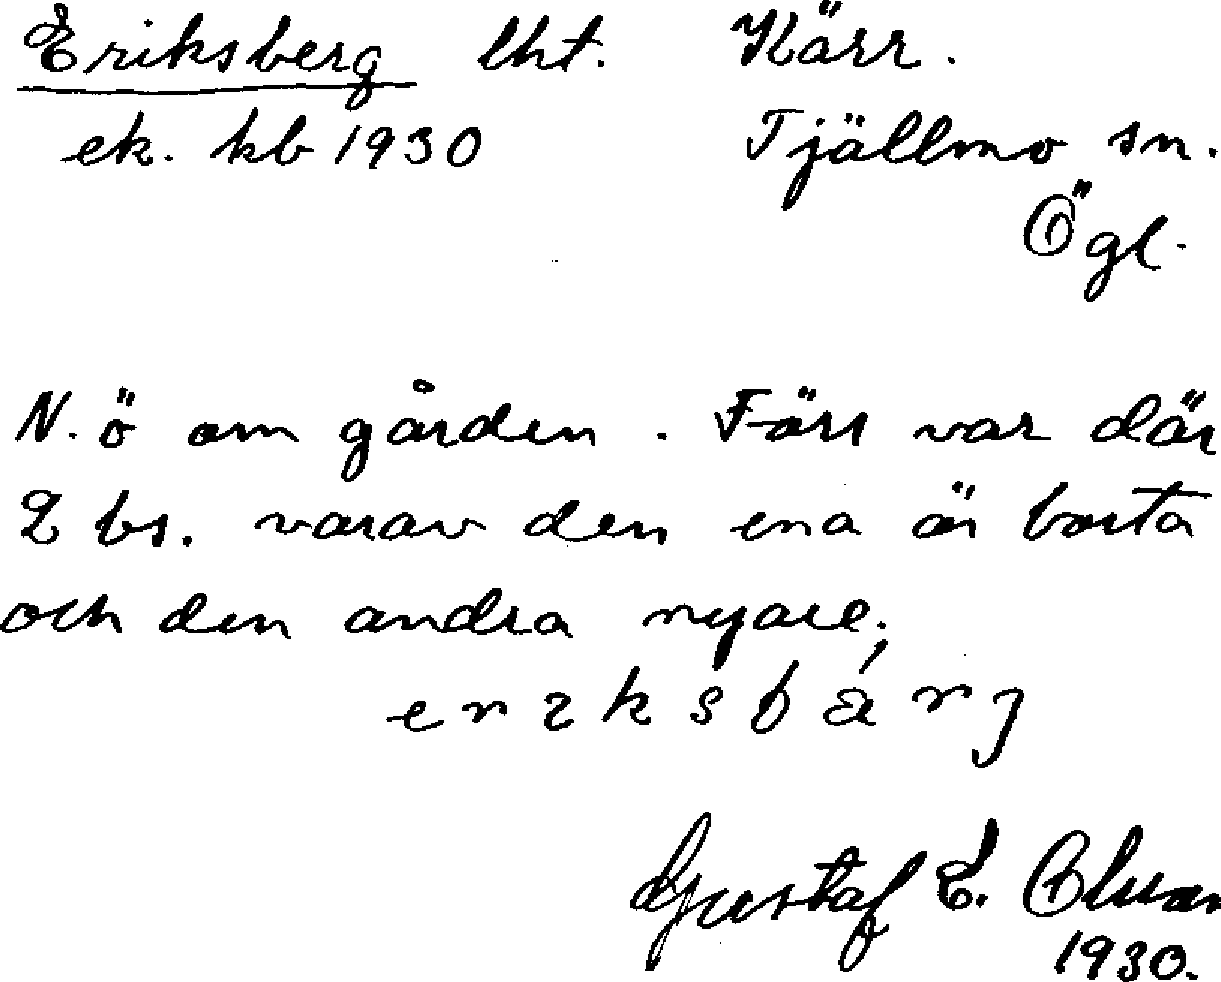 Eriksberg lht. Kärr.
ek. kb 1930 Tjällmo sn.
Ögl.
N. ö om gården. Förr var där
2 bs. varav den ena är borta
och den andra nyare.
erıksbárj
Gustaf E.
1930.